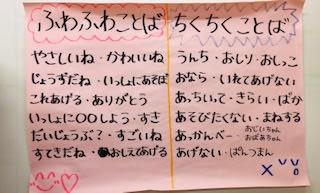 ふわふわことば
やさしいね・かわいいね
じょうずだね・いっしょにあそぼ
これあげる・ありがとう
いっしょに〇〇しよう・すき
だいじょうぶ?・すごいね
すてきだね・おしえてあげる
ちくちくことば
うんち・おしり・おしっこ
おなら・いれてあげない
あっちいって・きらい・ばか
あそびたくない・まねする
あっかんべー・おじいちゃん
おばあちゃん
あげない・ぱんつまん